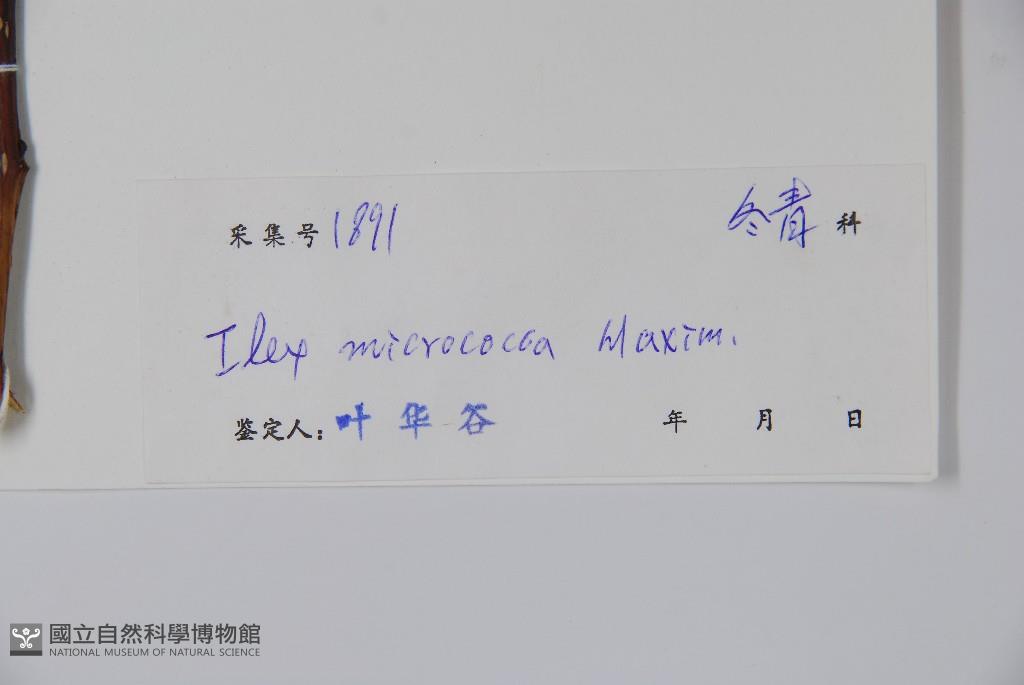 采集号 1891 冬青 科
Ilex micrococca Maxim.
鉴定人: 叶华谷 年 月 日
國立自然科學博物館
NATIONAL MUSEUM OF NATURAL SCIENCE